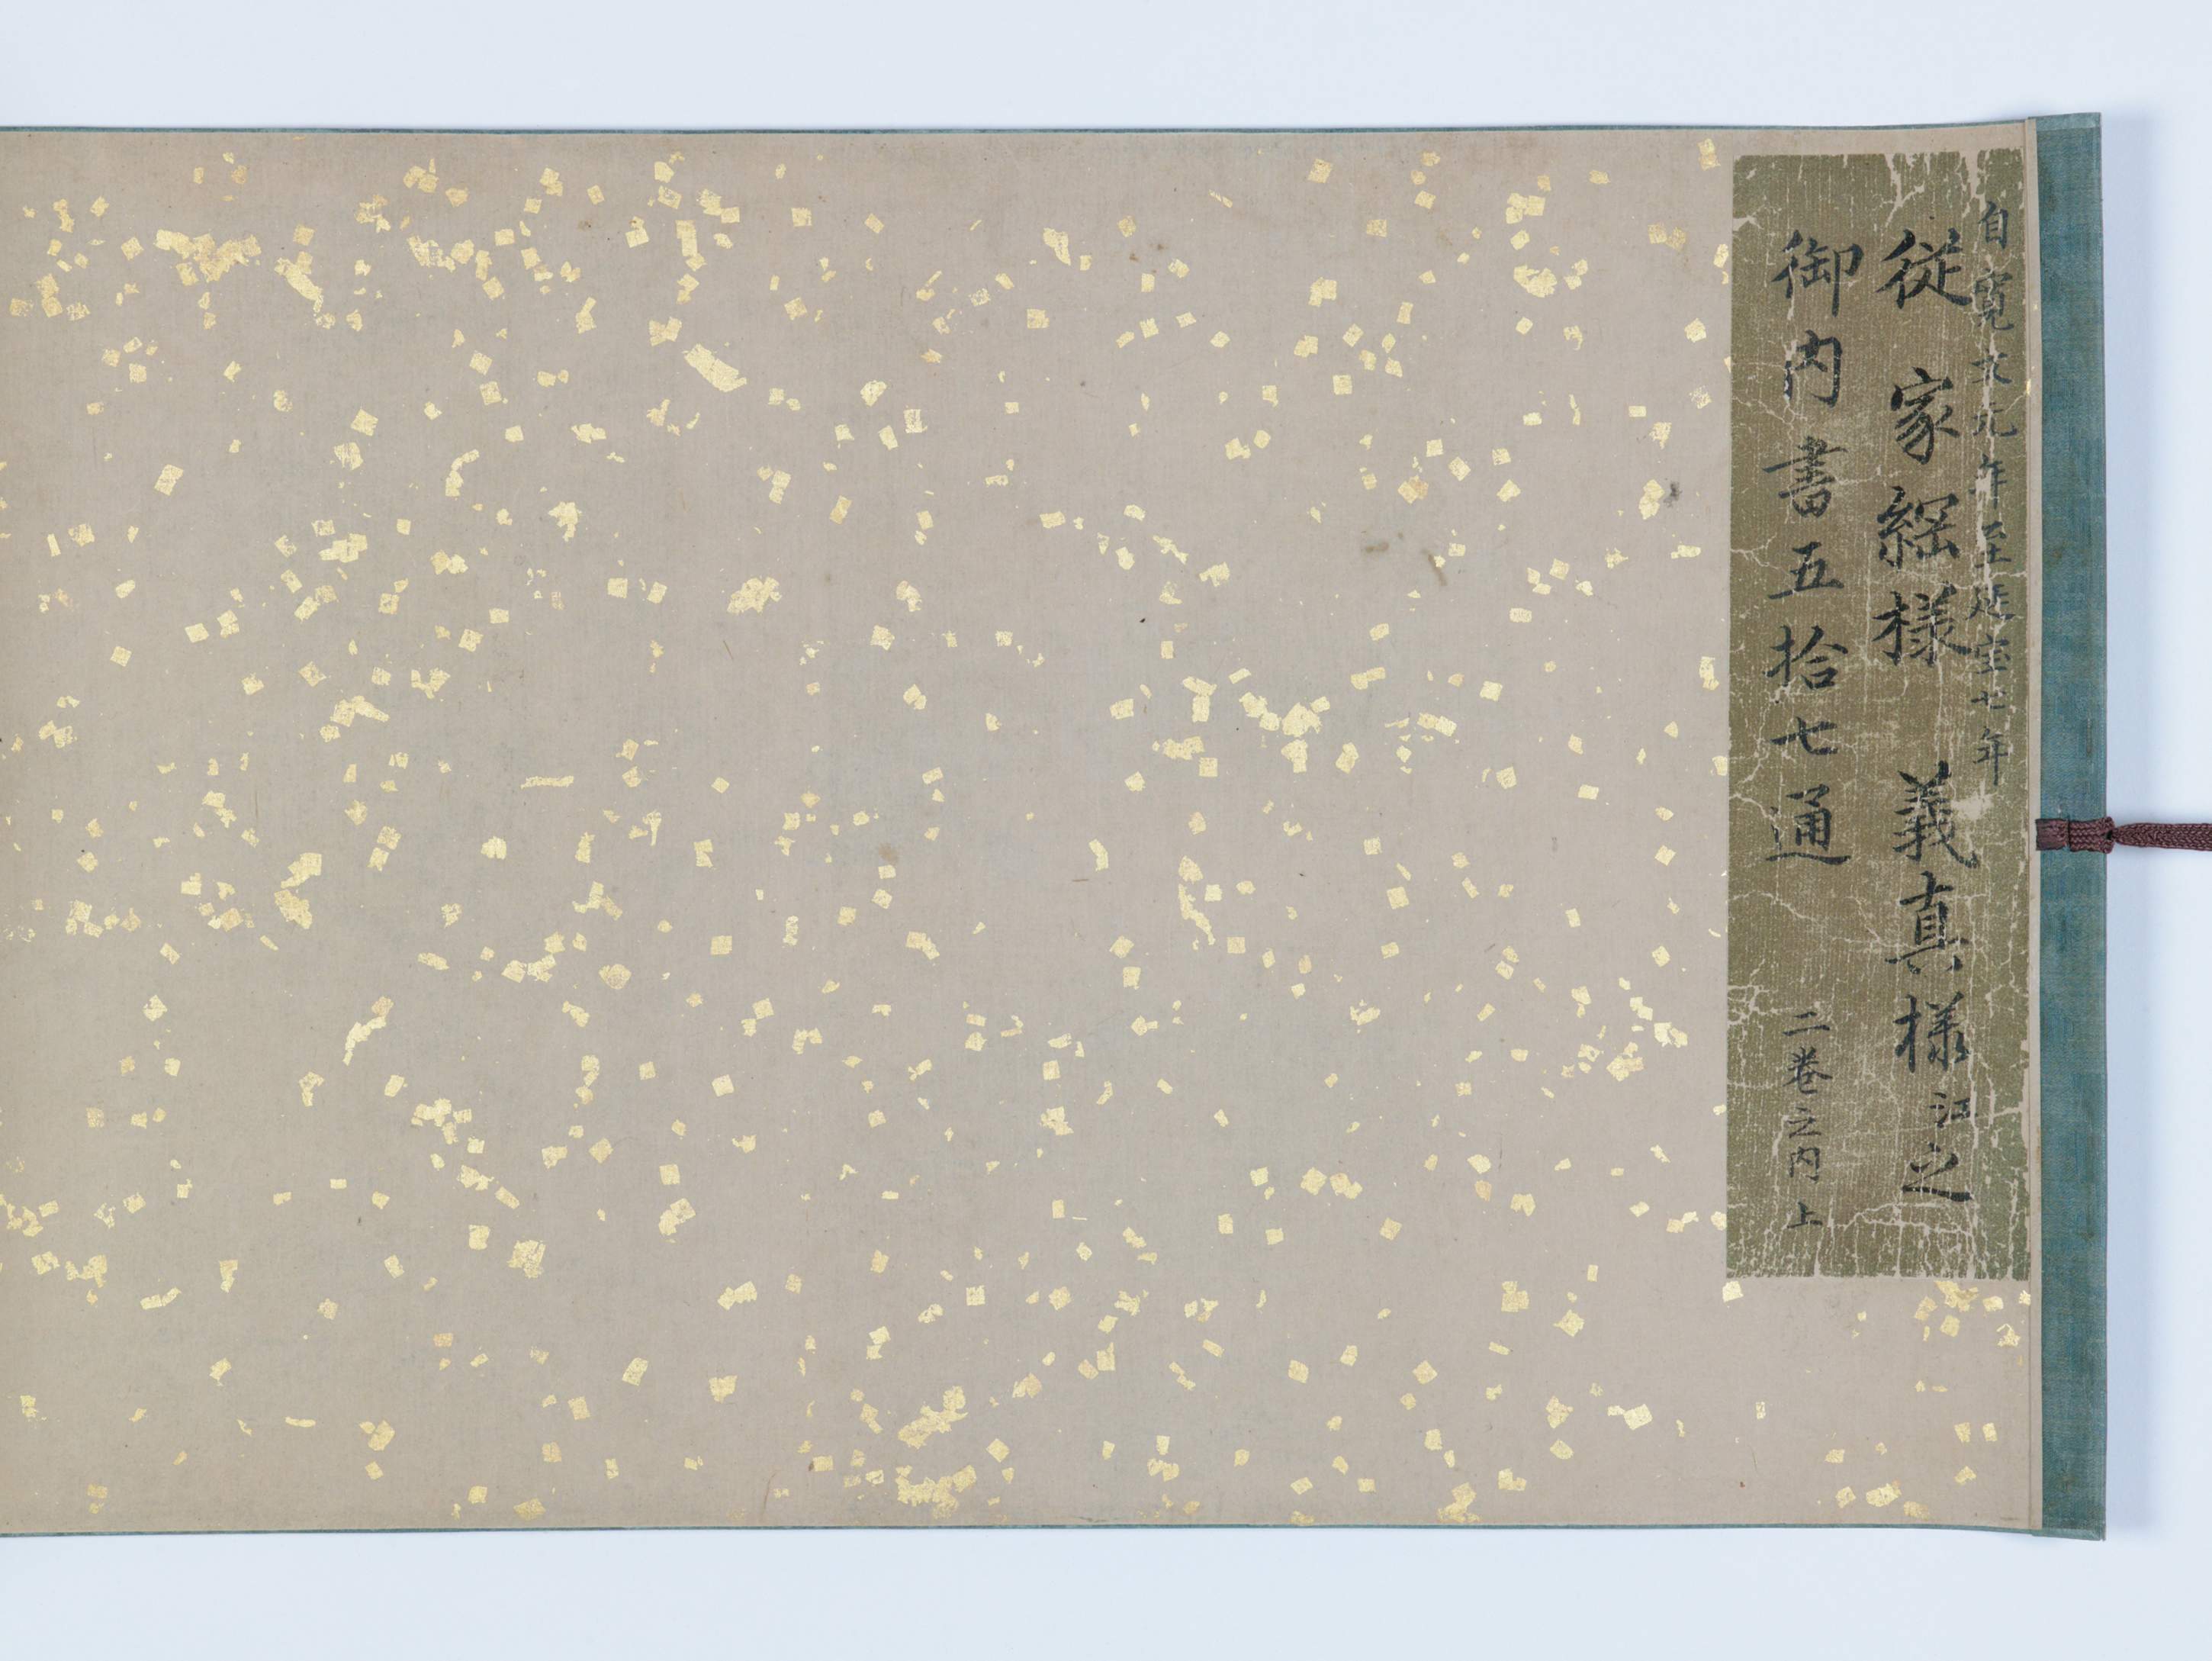 自寛文元年至延宝七年
従 家綱様 義真様江之
御内書五拾七通 二巻之内 上